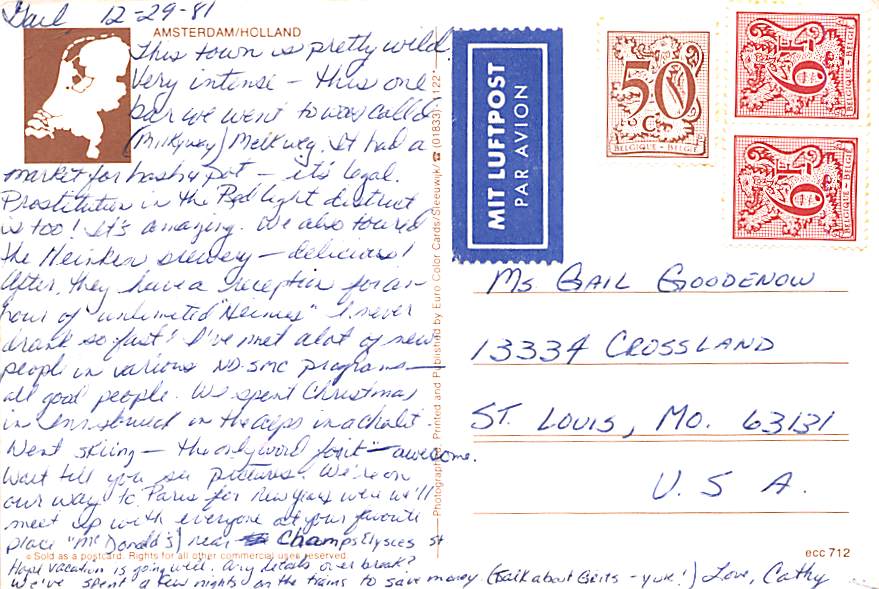 Gail 12-29-81
AMSTERDAM/HOLLAND
This town is pretty wild
Very intense - this one
bar we went to was called
(Milkyway) Melkweg. It had a
market for hash & pot - it's legal.
Prostitution in the Red light district
is too! It's amazing. We also toured
the Heinken brewery - delicious!
After, they have a reception for an
hour of "unlimited "Heinies" I never
drank so fast! I've met alot of new
people in various ND-SMC programs -
all good people. We spent Christmas
in Innsbruck in the Alps in a chalet.
Went skiing - the only word for it - awesome.
Wait till you see pictures. We're on
our way to Paris for New Years were we'll
meet up with everyone at your favorite
place "McDonald's) near Champs Elysees st
Hope vacation is going well. Any details over break?
We've spent a few nights on the trains to save money (talk about Grits - yuk!) Love, Cathy
© Sold as a postcard. Rights for all other commercial uses reserved.
Photographed, Printed and Published by Euro Color Cards/Sleeuwijk/☎ (01833) 1122
MIT LUFTPOST
PAR AVION
50
C
BELGIQUE - BELGIE
6F
BELGIQUE - BELGIË
6F
BELGIQUE - BELGIË
Ms. GAIL GOODENOW
13334 CROSSLAND
ST. LOUIS, MO. 63131
U. S A.
ecc 712